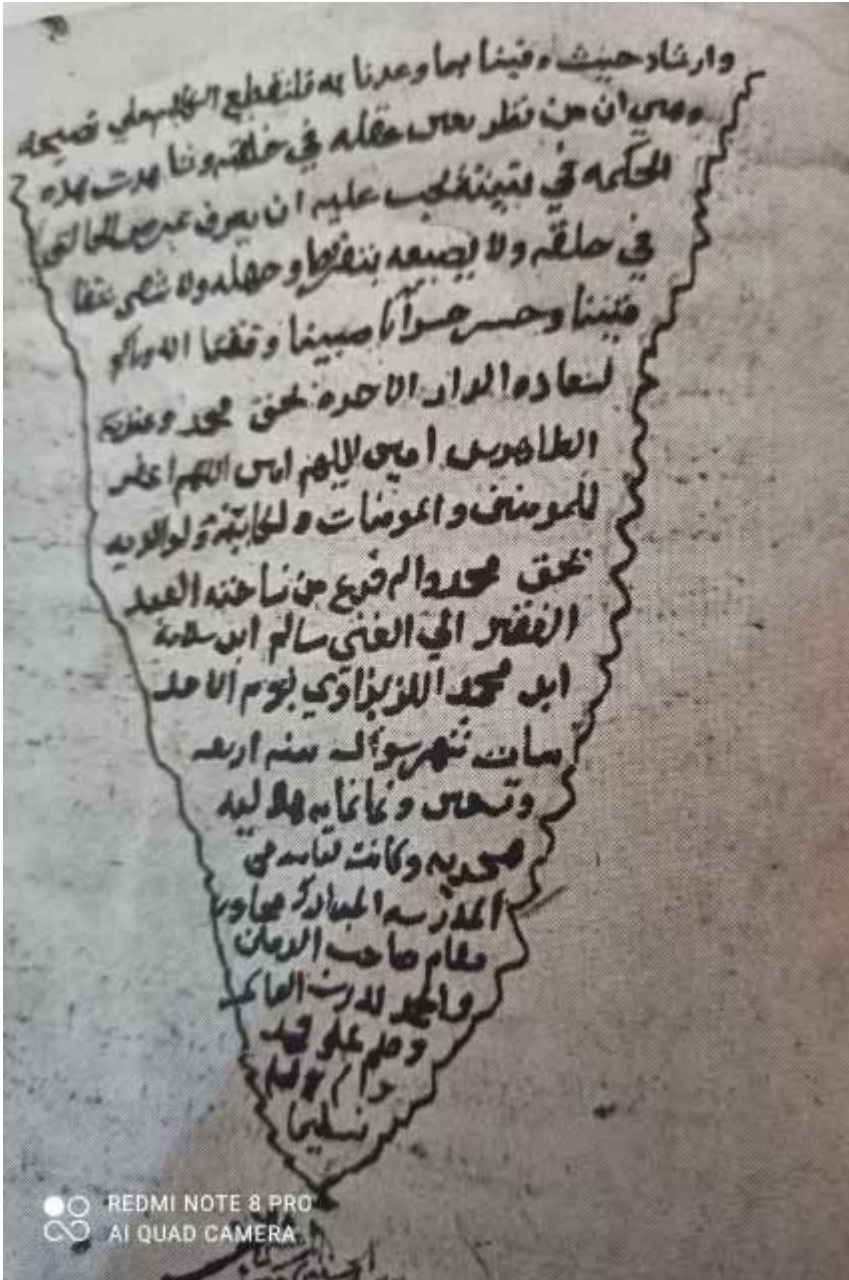 وارشاد حيث وفينا بما وعدنا به فلنقطع الكلام علي نصيحه
وهي ان من نظر بعين عقله في خلقه وتا هذه
الحكمه في بنيته فيجب عليه ان يعرف غرض الحالق
في خلقه ولا يضيعه بتفريط وجهله ولا
وخسر خسرانا مبينا وفقنا الله واياكم
لسعاده الدار الاخره بحق محمد وعترته
الطاهرين امين اللهم امين اللهم اغفر
للمومنين والمومنات ولكاتبه ولوالديه
بحق محمد واله فرغ من نساخته العبد
الفقير الي الغني سالم ابن سلامة
ابن محمد الجزيزاوي يوم الاحد
شهر شوال سنه اربعه
وتسعين وثمانمايه هلاليه
هجريه وكانت كتابته في
المدرسه المباركه مجاور
مقام صاحب الزمان
والحمد لله رب العالمين
وصلى على محمد
واله وسلم
تسليما
REDMI NOTE 8 PRO
AI QUAD CAMERA